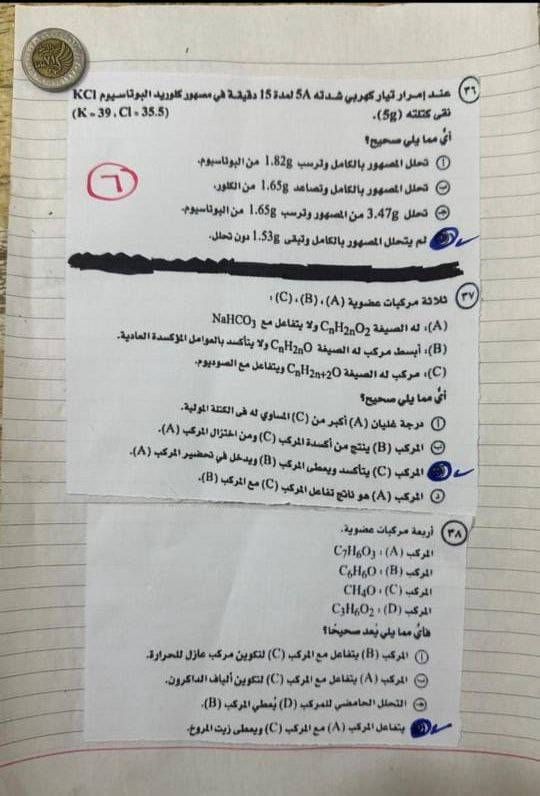 ٣٦ عند إمرار تيار كهربي شدته 5A لمدة 15 دقيقة في مصهور كلوريد البوتاسيوم KCl
نقى كتلته (5g). (K = 39 , Cl = 35.5)
أي مما يلي صحيح؟
أ تحلل المصهور بالكامل وترسب 1.82g من البوتاسيوم.
ب تحلل المصهور بالكامل وتصاعد 1.65g من الكلور.
ج تحلل 3.47g من المصهور وترسب 1.65g من البوتاسيوم.
لم يتحلل المصهور بالكامل وتبقى 1.53g دون تحلل.
٦
٣٧ ثلاثة مركبات عضوية (A)، (B)، (C) :
(A): له الصيغة CnH2nO2 ولا يتفاعل مع NaHCO3
(B): أبسط مركب له الصيغة CnH2nO ولا يتأكسد بالعوامل المؤكسدة العادية.
(C): مركب له الصيغة CnH2n+2O ويتفاعل مع الصوديوم.
أي مما يلي صحيح؟
أ درجة غليان (A) أكبر من (C) المساوي له فى الكتلة المولية.
ب المركب (B) ينتج من أكسدة المركب (C) ومن اختزال المركب (A).
المركب (C) يتأكسد ويعطى المركب (B) ويدخل في تحضير المركب (A).
د المركب (A) هو ناتج تفاعل المركب (C) مع المركب (B).
٣٨ أربعة مركبات عضوية.
المركب (A) : C7H6O3
المركب (B) : C6H6O
المركب (C) : CH4O
المركب (D) : C3H6O2
فأي مما يلي يُعد صحيحًا؟
أ المركب (B) يتفاعل مع المركب (C) لتكوين مركب عازل للحرارة.
ب المركب (A) يتفاعل مع المركب (C) لتكوين ألياف الداكرون.
ج التحلل الحامضي للمركب (D) يُعطي المركب (B).
يتفاعل المركب (A) مع المركب (C) ويعطى زيت المروخ.